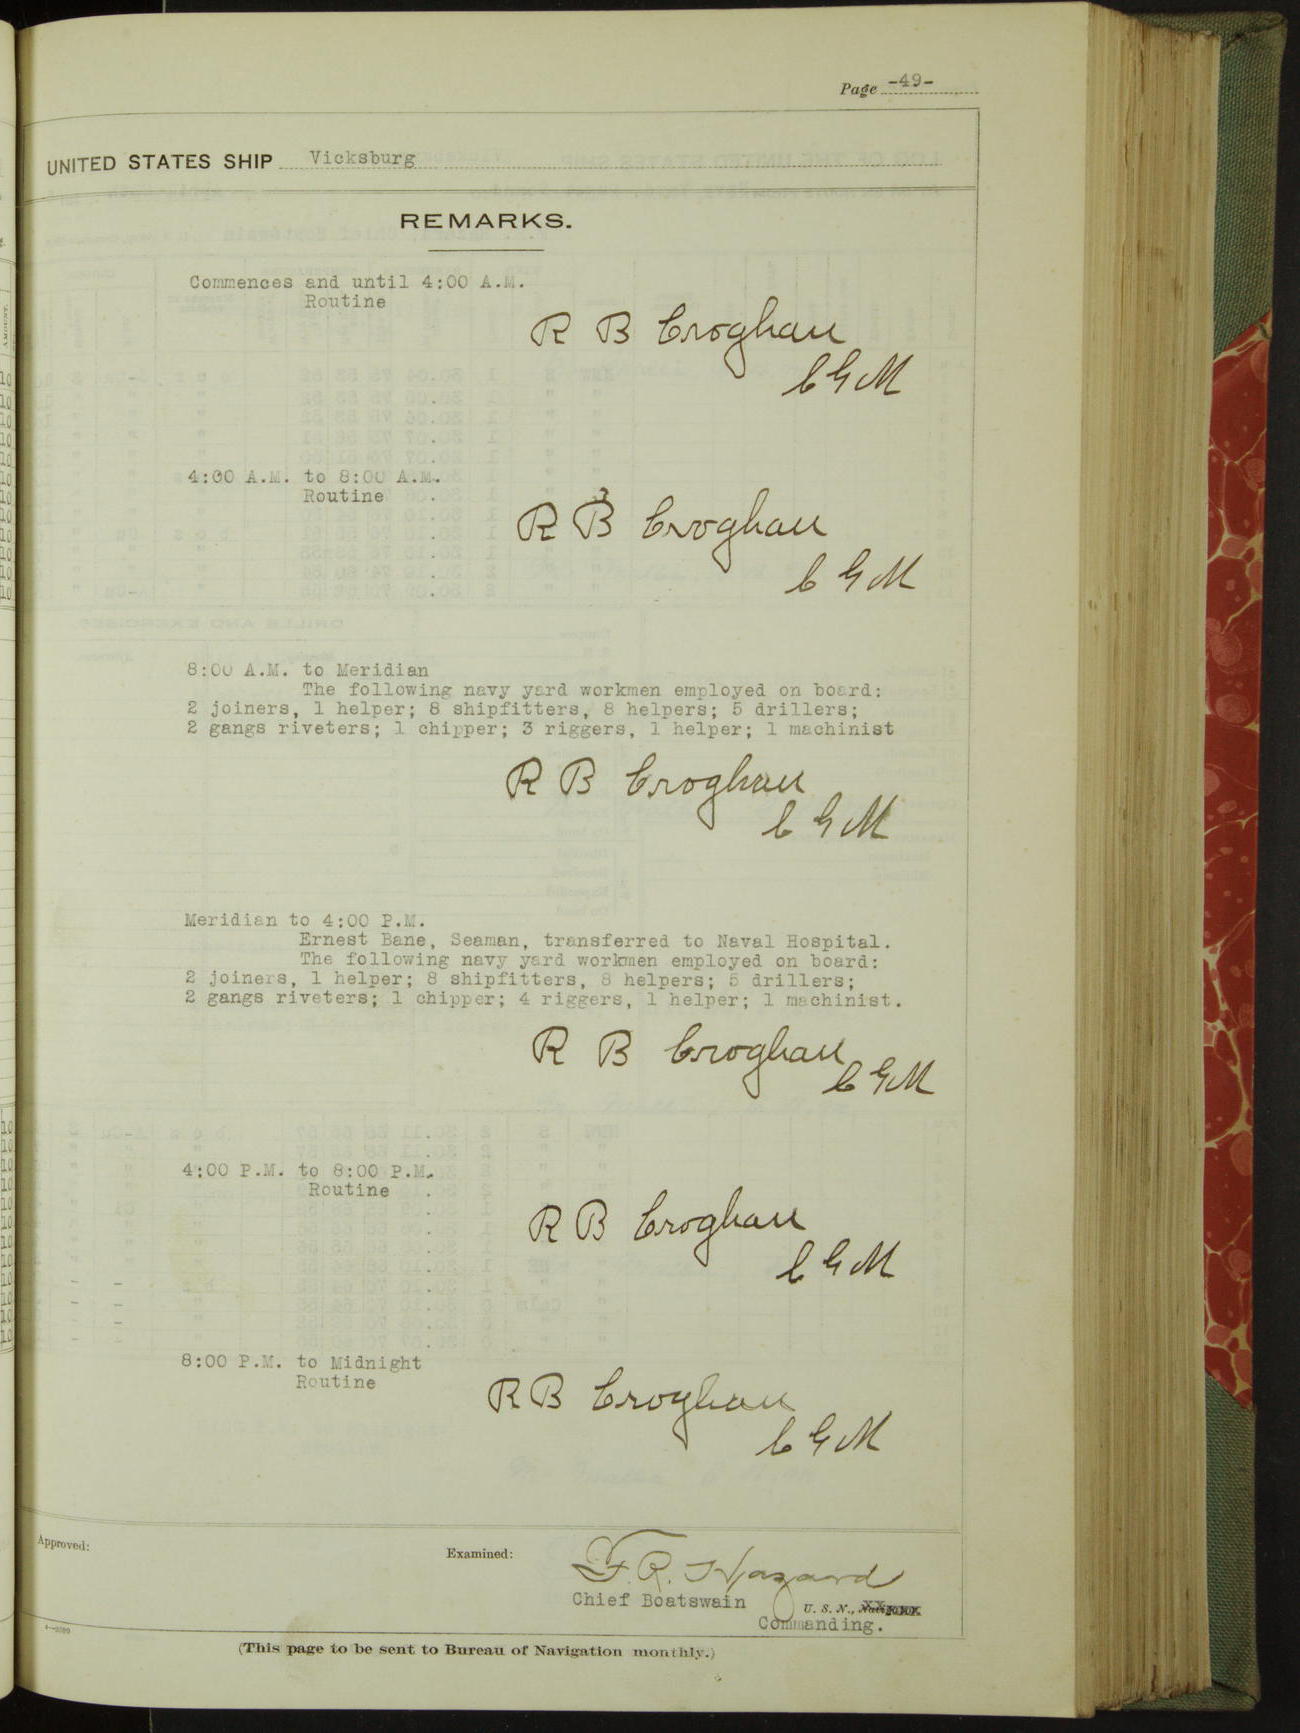 Page -49-
UNITED STATES SHIP Vicksburg
REMARKS.
Commences and until 4:00 A.M.
Routine
R B Croghan
C G M
4:00 A.M. to 8:00 A.M.
Routine
R B Croghan
C G M
8:00 A.M. to Meridian
The following navy yard workmen employed on board:
2 joiners, 1 helper; 8 shipfitters, 8 helpers; 5 drillers;
2 gangs riveters; 1 chipper; 3 riggers, 1 helper; 1 machinist
R B Croghan
C G M
Meridian to 4:00 P.M.
Ernest Bane, Seaman, transferred to Naval Hospital.
The following navy yard workmen employed on board:
2 joiners, 1 helper; 8 shipfitters, 8 helpers; 5 drillers;
2 gangs riveters; 1 chipper; 4 riggers, 1 helper; 1 machinist.
R B Croghan
C G M
4:00 P.M. to 8:00 P.M.
Routine
R B Croghan
C G M
8:00 P.M. to Midnight
Routine
R B Croghan
C G M
Approved:
Examined:
F. R. Hazard
Chief Boatswain
U. S. N.,
Commanding.
(This page to be sent to Bureau of Navigation monthly.)